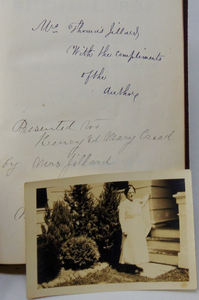 Mrs Thomas Jillard
With the compliments
of the
Author
Presented to
Henry & Mary Creed
by Mrs Jillard